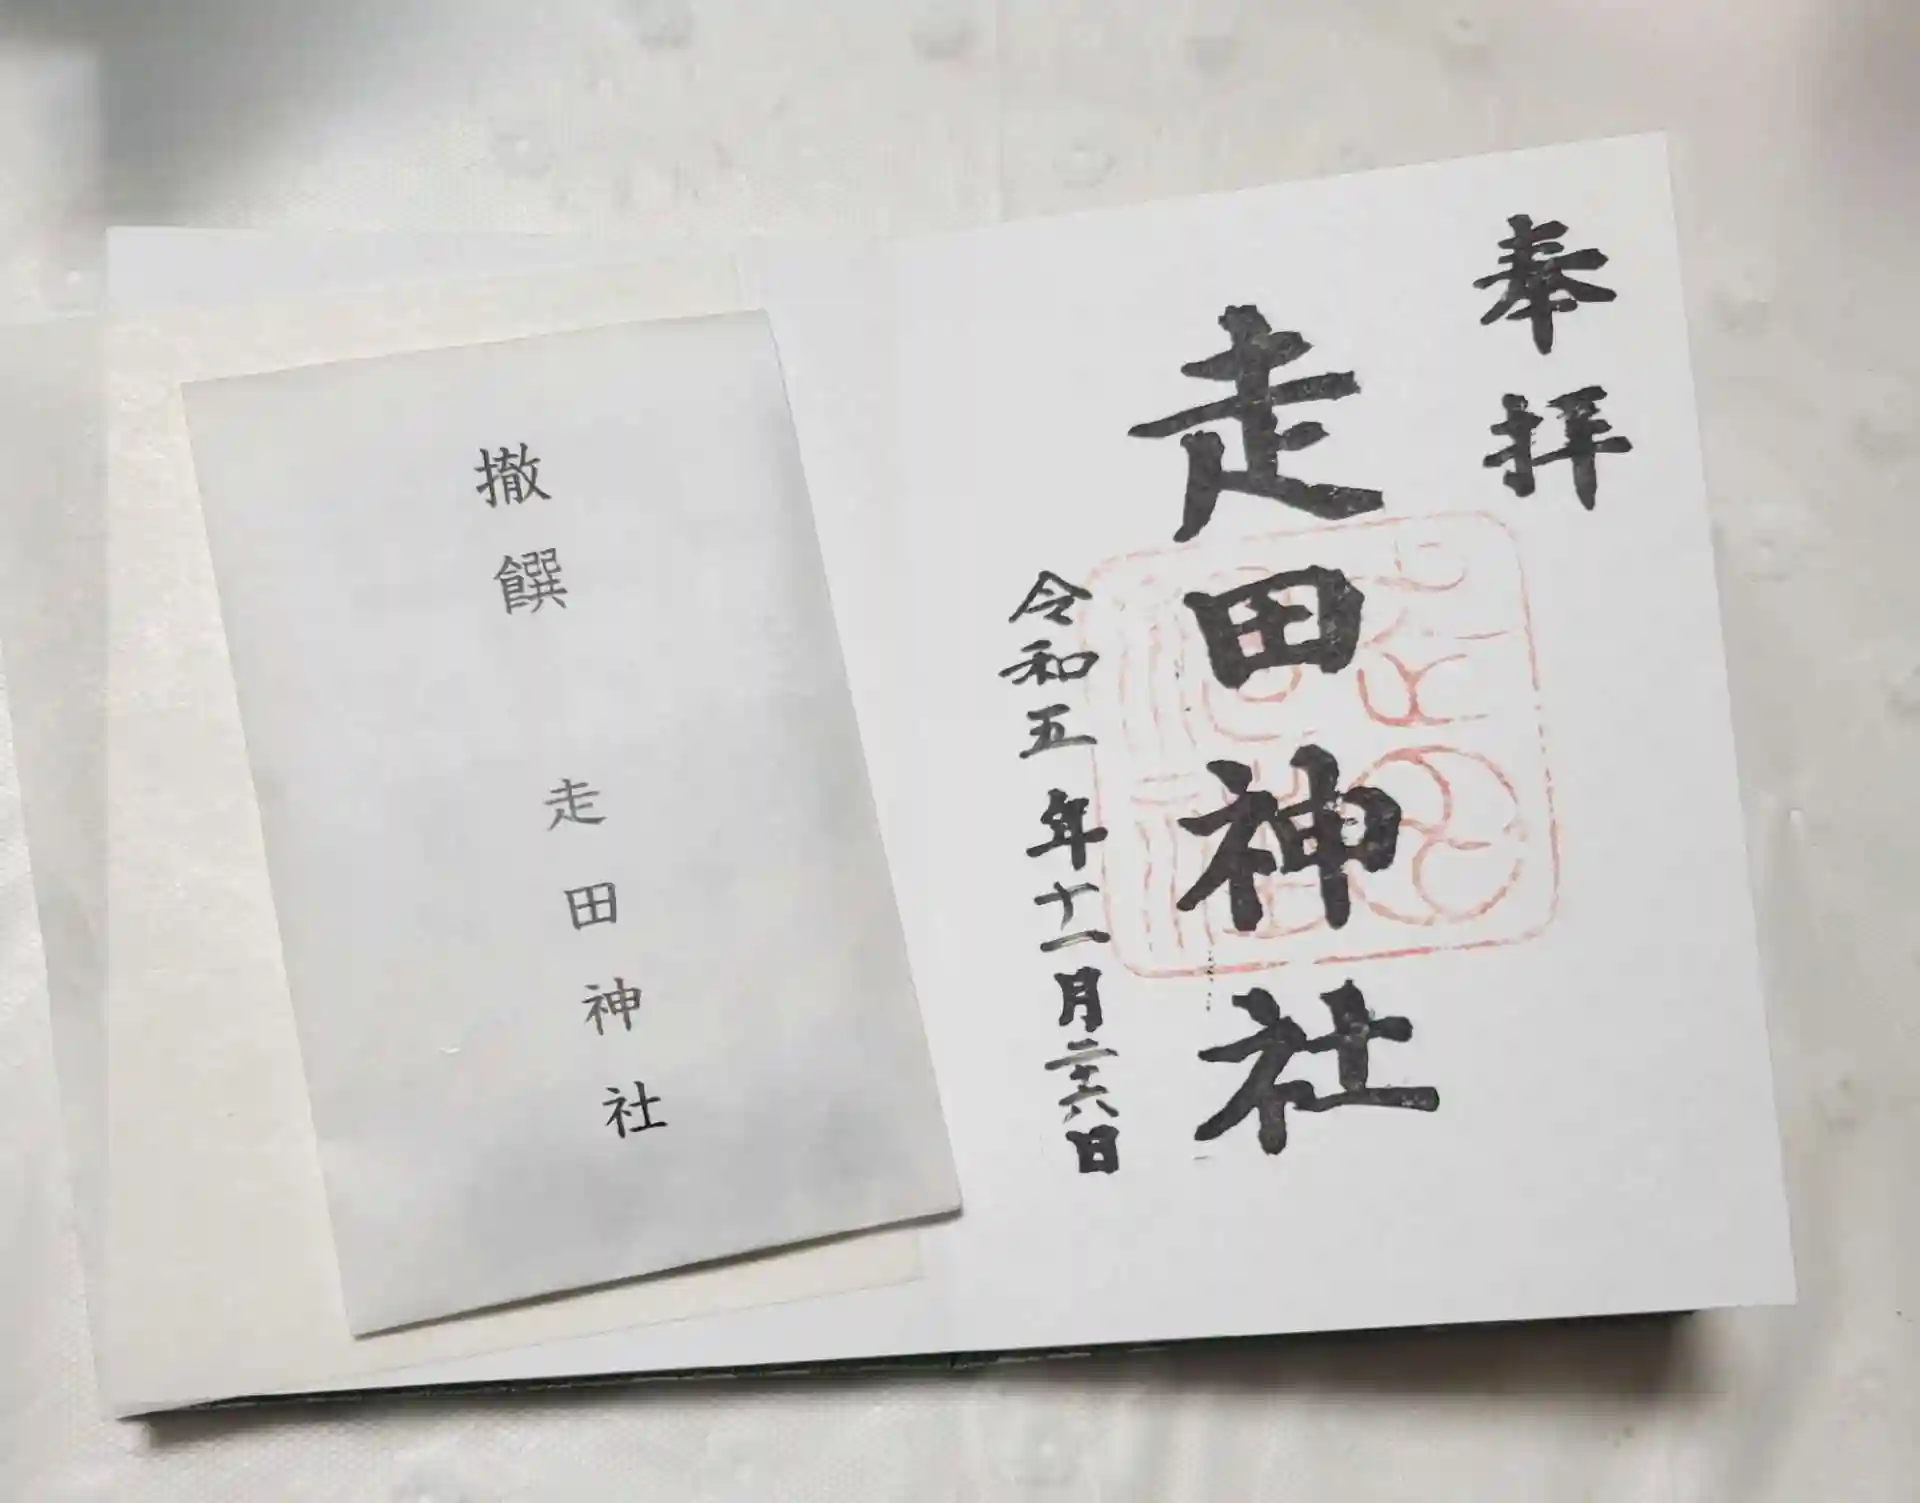 奉拝
走田神社
令和五年十一月二十六日
撤饌 走田神社